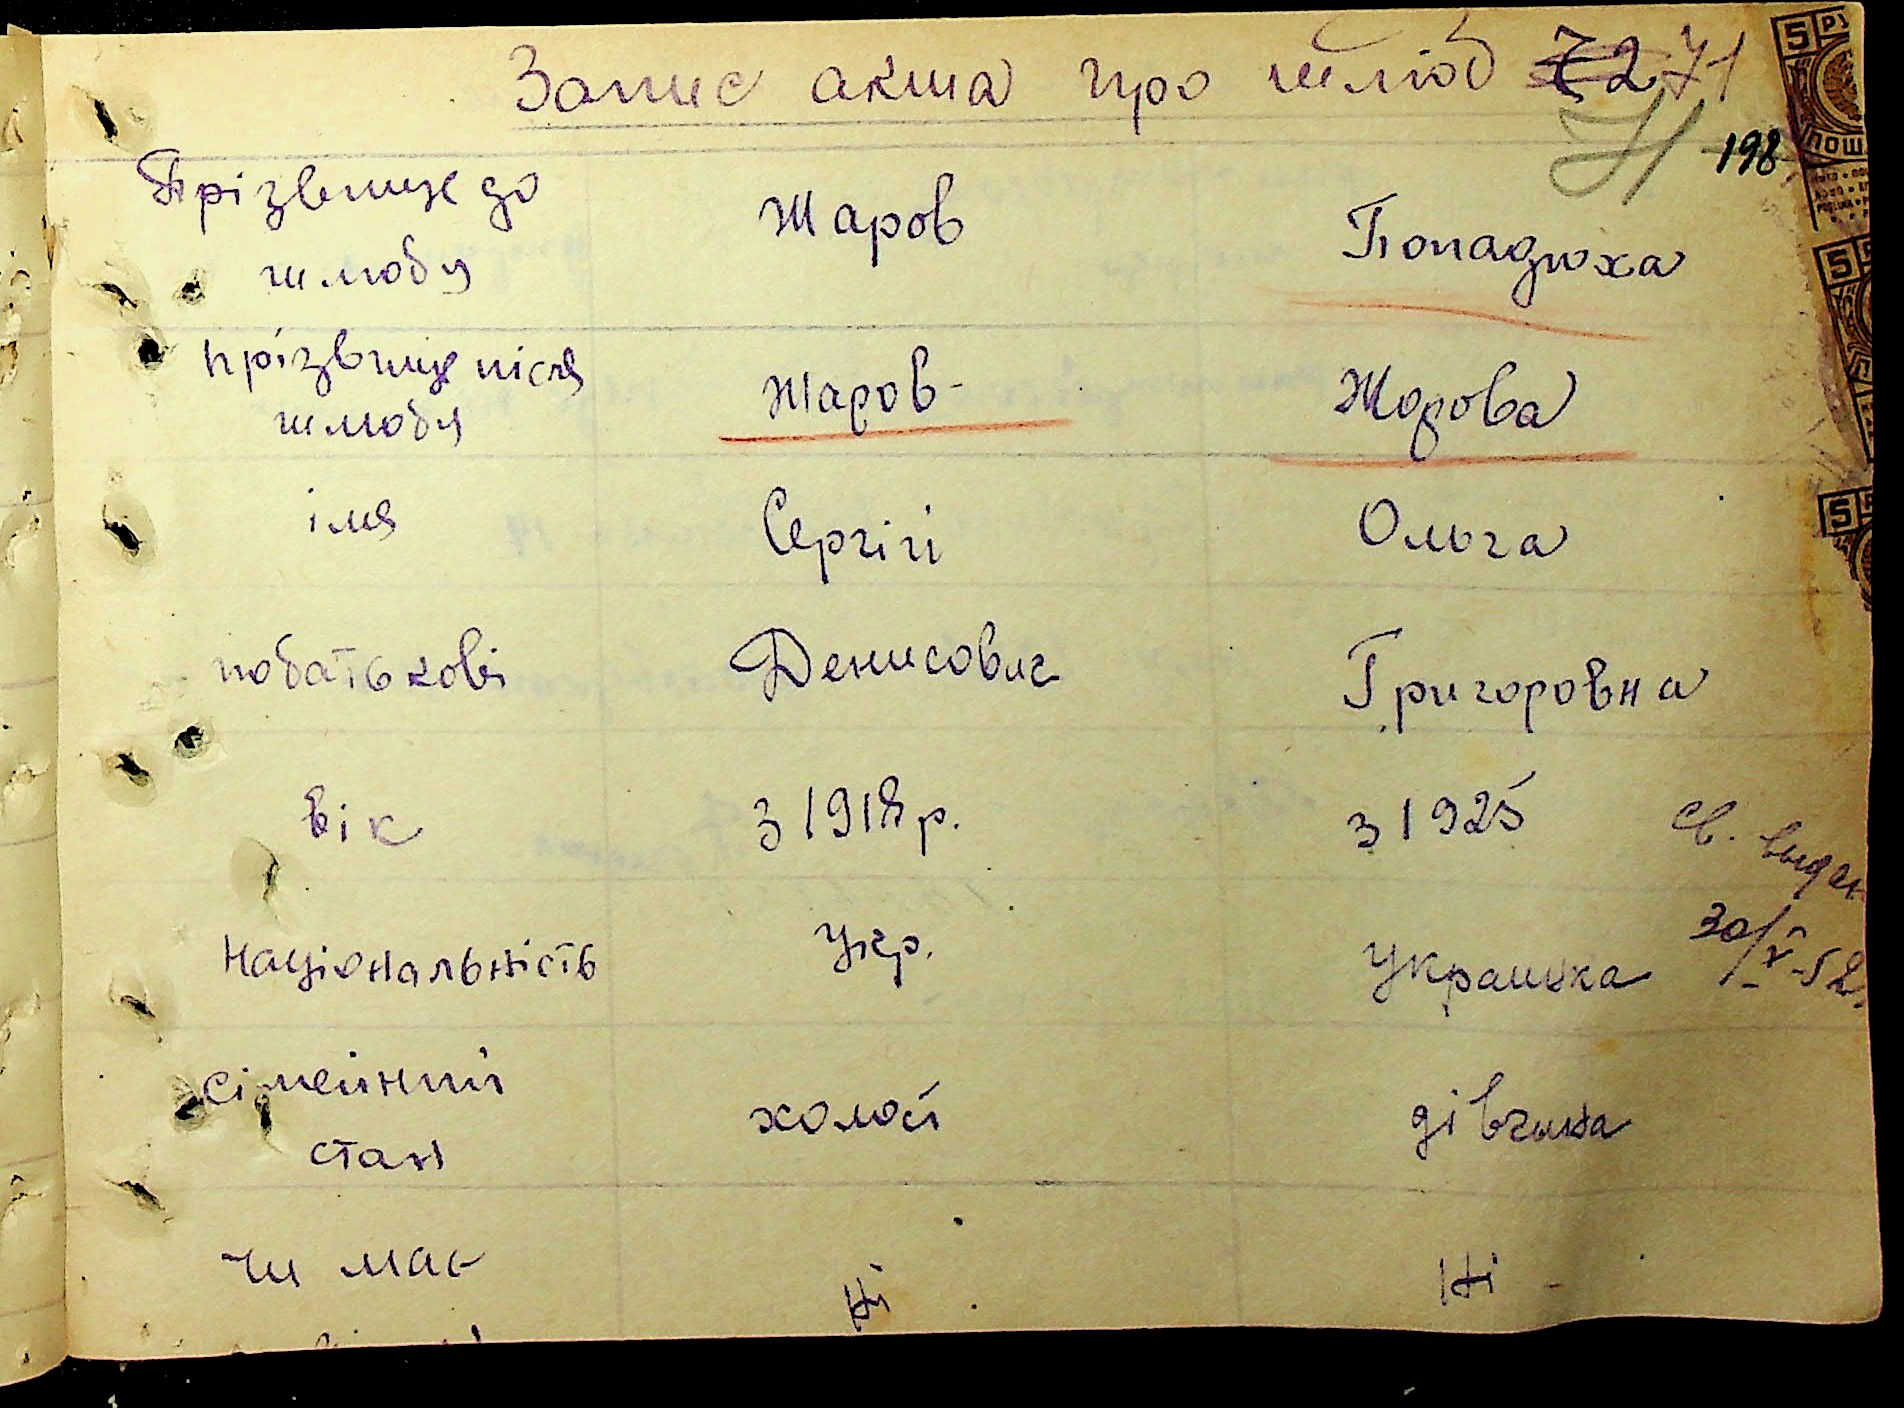 Запис акта про шлюб 72 71
71 198
Прізвище до шлюбу Жаров Попадюха
прізвище після шлюбу Жаров Жарова
імя Сергій Ольга
по батькові Денисович Григоровна
вік з 1918 р. з 1925 св. выдан
національність Укр. Украинка 30/V-52
сімейний стан холост дівчина
чи має Ні Ні
5
5
5